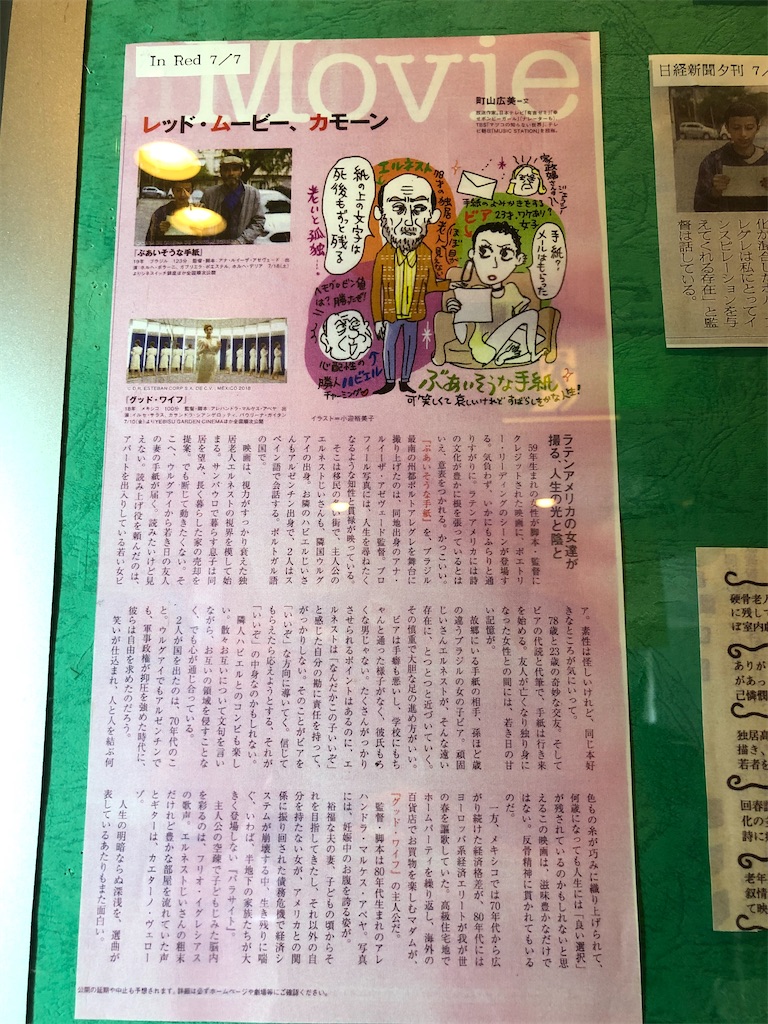 In Red 7/7
Movie
レッド・ムービー、カモーン
町山広美＝文
エルネスト
紙の上の文字は
死後もずっと残る
老いと孤独…
78才の独居老人
手紙のよみかきをする
ビア
23才、ワケあり？
女子
手紙？
メルはもらった
心配性の
隣人ハビエル
チャーミング
ぶあいそうな手紙
可笑しくて哀しいけれどすばらしきかな人生！
イラスト＝小迎裕美子
『ぶあいそうな手紙』
『グッド・ワイフ』
ラテンアメリカの女達が
撮る、人生の光と陰と
59年生まれの女性が脚本・監督に
クレジットされた映画に、ポエトリ
ー・リーディングのシーンが登場す
る。気負わず、いかにもふらりと通
りすがりに。ラテンアメリカには詩
の文化が豊かに根を張っているとは
いえ、意表をつかれる。かっこいい。
『ぶあいそうな手紙』を、ブラジル
最南の州都ポルトアレグレを舞台に
撮り上げたのは、同地出身のアナ・
ルイーザ・アゼヴェード監督。プロ
フィール写真には、人生を尋ねたく
なるような知性と貫禄が映っている。
そこは移民の多い街で、主人公の
エルネストじいさんも、隣国ウルグ
アイの出身。お隣のハビエルじいさ
んもアルゼンチン出身で、2人はス
ペイン語で会話する。ポルトガル語
の国で。
映画は、視力がすっかり衰えた独
居老人エルネストの視界を模して始
まる。サンパウロで暮らす息子は同
居を望み、長く暮らした家の売却を
提案。でも断じて動きたくない。そ
こへ、ウルグアイから若き日の友人
の妻の手紙が届く。読みたいけど見
えない。読み上げ役を頼んだのは、
アパートを出入りしている若い女ビ
ア。素性は怪しいけれど、同じ本好
きなところが気にいって。
78歳と23歳の奇妙な交友。そして
ビアの代読と代筆で、手紙は行き来
を始める。友人が亡くなり独り身に
なった女性との間には、若き日の甘
い記憶が。
故郷にいる手紙の相手、孫ほど歳
の違うブラジルの女の子ビア。頑固
じいさんエルネストが、そんな遠い
存在に、とつとつと近づいていく。
その慎重で大胆な足の進め方がいい。
ビアは手癖も悪いし、学校にもち
ゃんと通った様子がなく、彼氏もろ
くな男じゃない。たくさんがっかり
させられるポイントはあるのに、エ
ルネストは「なんだかこの子いいぞ」
と感じた自分の勘に責任を持って、
がっかりしない。そのことがビアを
「いいぞ」な方向に導いてく。信じて
もらえたら応えようとする、それが
「いいぞ」の中身なのかもしれない。
隣人ハビエルとのコンビも楽し
い。散々お互いについて文句を言い
ながら、お互いの領域を侵すことな
く、でも心が通じ合っている。
2人が国を出たのは、70年代のこ
と。ウルグアイでもアルゼンチンで
も、軍事政権が抑圧を強めた時代に、
彼らは自由を求めたのだろう。
笑いが仕込まれ、人と人を結ぶ何
色もの糸が巧みに織り上げられて、
何歳になっても人生には「良い選択」
が残されているのかもしれないと思
えるこの映画は、滋味豊かなだけで
はない。反骨精神に貫かれてもいる
のだ。
一方、メキシコでは70年代から広
がり続けた経済格差が、80年代には
ヨーロッパ系経済エリートが我が世
の春を謳歌していた。高級住宅地で
ホームパーティを繰り返し、海外の
百貨店でお買物を楽しむマダムが、
『グッド・ワイフ』の主人公だ。
監督・脚本は80年代生まれのアレ
ハンドラ・マルケス・アベヤ。写真
には、妊娠中のお腹を誇る姿が。
裕福な夫の妻。子どもの頃からそ
れを目指してきたし、それ以外の自
分を持たない女が、アメリカとの関
係に振り回された債務危機で経済シ
ステムが崩壊する中、生き残りに喘
ぐ、いわば、半地下の家族たちが大
きく登場しない『パラサイト』。
主人公の空疎で子どもじみた脳内
を彩るのは、フリオ・イグレシアス
の歌声。エルネストじいさんの粗末
だけれど豊かな部屋を流れていた声
とギターは、カエターノ・ヴェロー
ゾ。
人生の明暗ならぬ深浅を、選曲が
表しているあたりもまた面白い。
公開の延期や中止も予想されます。詳細は必ずホームページや劇場等にご確認ください。
日経新聞夕刊 7/
レグレは私にとってイ
ンスピレーションを与
えてくれる存在」と監
督は話している。